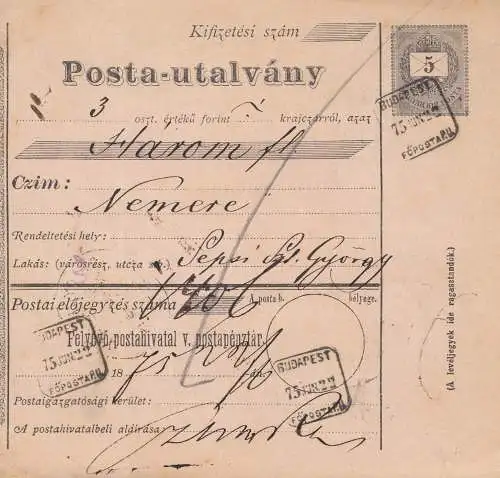 Kifizetési szám
Posta-utalvány
3 oszt. értékü forint krajczárról, azaz
Három fl
Czim:
Nemere
Rendeltetési hely:
Lakás: (városrész, utcza sz.) Sepsi Szt. György
Postai előjegyzés száma
A posta b. bélyege.
Felvevő postahivatal v. postapénztár
18 75
Postaigazgatósági kerület:
A postahivatalbeli aláirása:
5
BUDAPEST
75 JUN 22
FŐPOSTA P.U.
BUDAPEST
75 JUN 22
FŐPOSTA P.U.
BUDAPEST
75 JUN 22
FŐPOSTA P.U.
(A levéljegyek ide ragasztandók.)